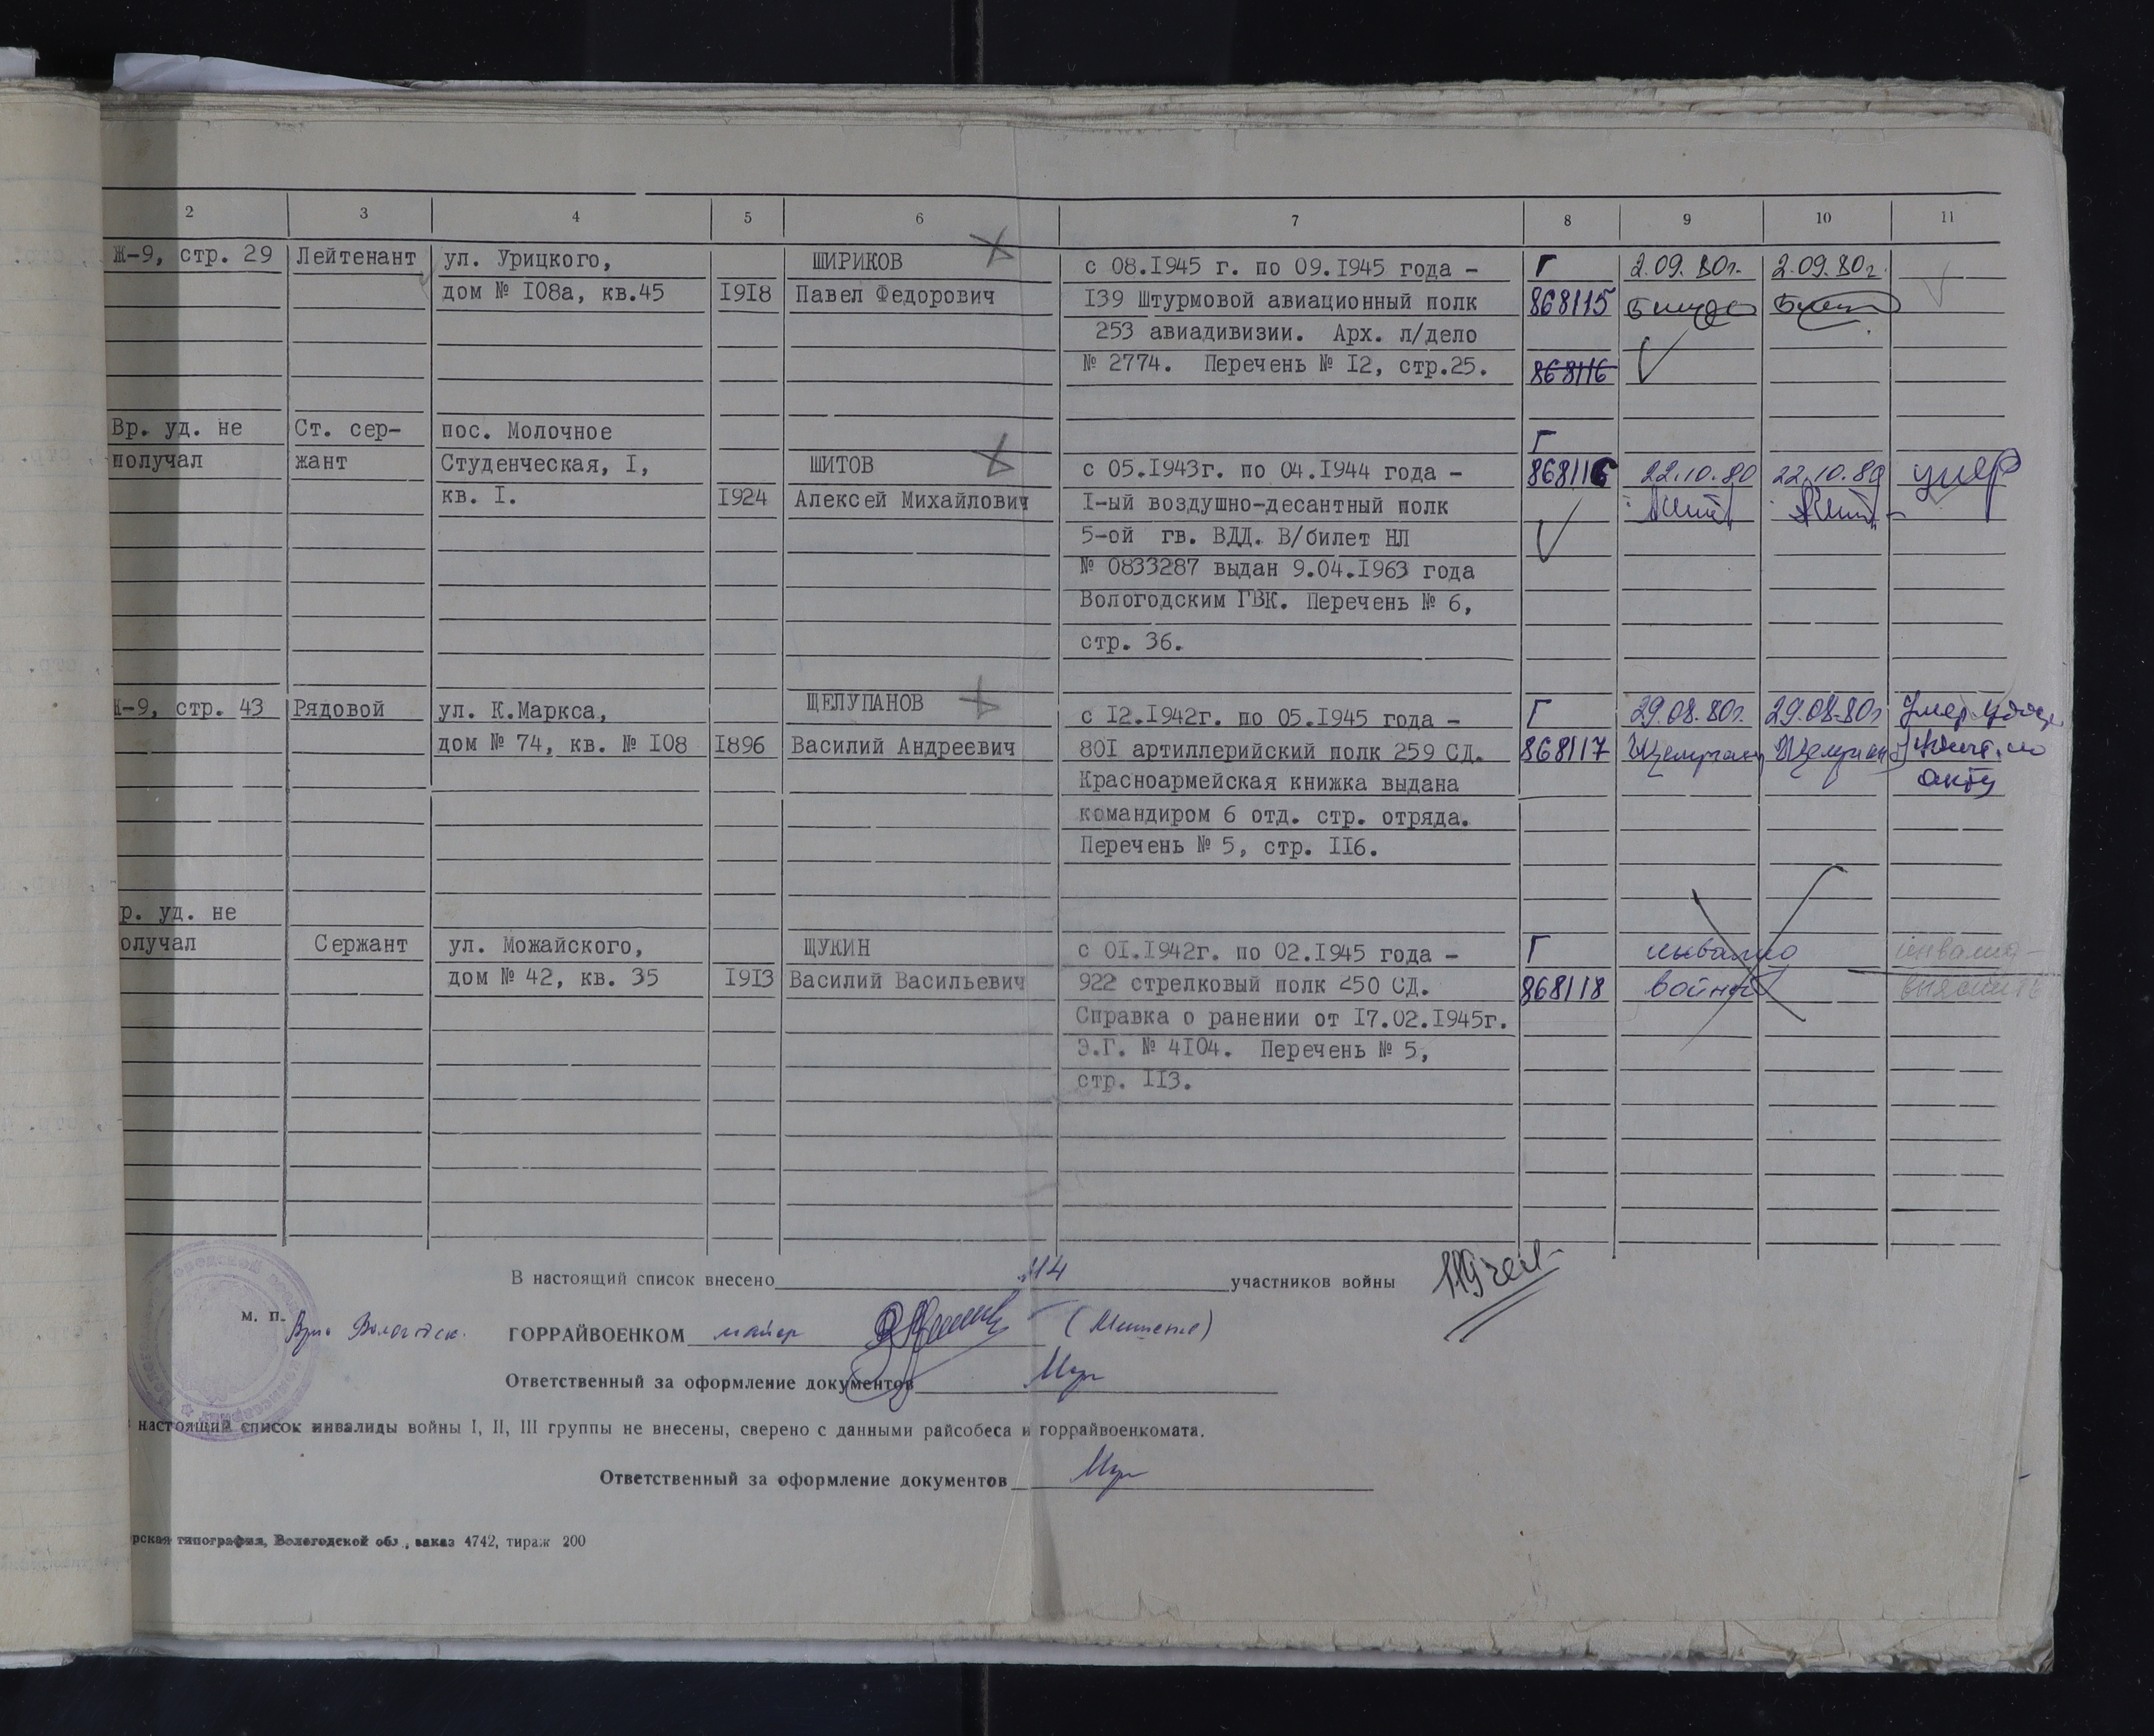 2 3 4 5 6 7 8 9 10 11
Ж-9, стр. 29 Лейтенант ул. Урицкого, ШИРИКОВ с 08.1945 г. по 09.1945 года - Г 2.09.80г. 2.09.80г.
дом № 108а, кв.45 1918 Павел Федорович 139 Штурмовой авиационный полк 868115
253 авиадивизии. Арх. л/дело
№ 2774. Перечень № 12, стр.25. 868116
Вр. уд. не Ст. сер- пос. Молочное Г
получал жант Студенческая, 1, ШИТОВ с 05.1943г. по 04.1944 года - 868116 22.10.80 22.10.80 умер
кв. 1. 1924 Алексей Михайлович 1-ый воздушно-десантный полк
5-ой гв. ВДД. В/билет НЛ
№ 0833287 выдан 9.04.1963 года
Вологодским ГВК. Перечень № 6,
стр. 36.
Ж-9, стр. 43 Рядовой ул. К.Маркса, ЩЕЛУПАНОВ с 12.1942г. по 05.1945 года - Г 29.08.80г. 29.08.80г Умер
дом № 74, кв. № 108 1896 Василий Андреевич 801 артиллерийский полк 259 СД. 868117 по
Красноармейская книжка выдана акту
командиром 6 отд. стр. отряда.
Перечень № 5, стр. 116.
р. уд. не
олучал Сержант ул. Можайского, ЩУКИН с 01.1942г. по 02.1945 года - Г инвалид инвалид
дом № 42, кв. 35 1913 Василий Васильевич 922 стрелковый полк 250 СД. 868118 войны
Справка о ранении от 17.02.1945г.
Э.Г. № 4104. Перечень № 5,
стр. 113.
В настоящий список внесено 114 участников войны
м. п. Врио Вологодск. ГОРРАЙВОЕНКОМ майор
Ответственный за оформление документов
настоящий список инвалиды войны I, II, III группы не внесены, сверено с данными райсобеса и горрайвоенкомата.
Ответственный за оформление документов
рская типография, Вологодской обл., заказ 4742, тираж 200